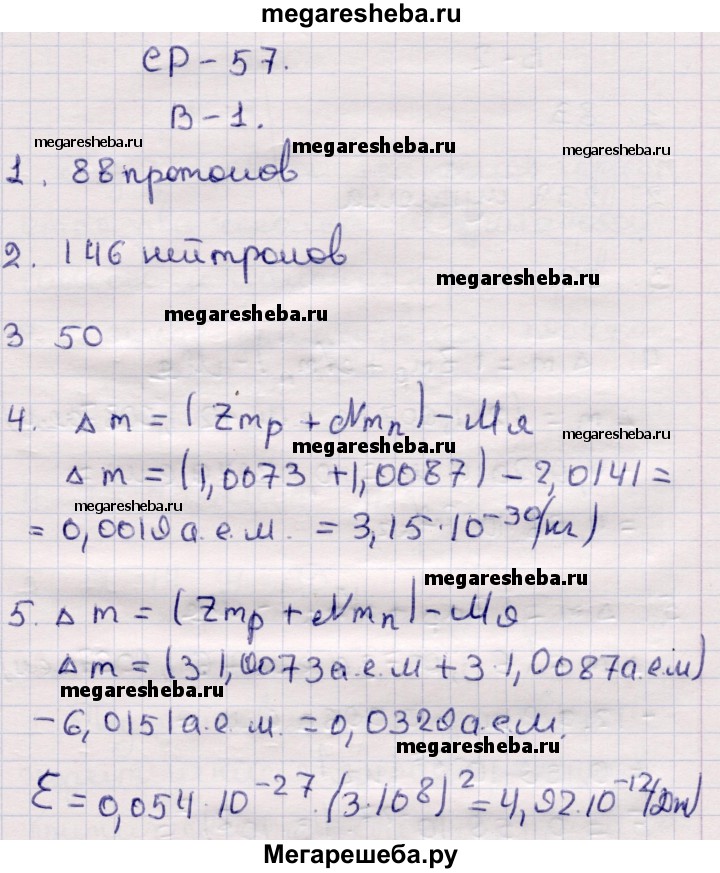 megaresheba.ru
СР-57.
В-1.
megaresheba.ru megaresheba.ru megaresheba.ru
1. 88 протонов
2. 146 нейтронов
megaresheba.ru
megaresheba.ru
3 50
4. Δm = (Zmp + Nmn) - Mя
megaresheba.ru megaresheba.ru
Δm = (1,0073 + 1,0087) - 2,0141 =
megaresheba.ru
= 0,0019 а.е.м. = 3,15·10⁻³⁰(кг)
megaresheba.ru
5. Δm = (Zmp + Nmn) - Mя
Δm = (3·1,0073а.е.м + 3·1,0087а.е.м)
megaresheba.ru
-6,0151а.е.м. = 0,0329а.е.м.
megaresheba.ru
Ɛ = 0,054·10⁻²⁷·(3·10⁸)² = 4,92·10⁻¹²(Дж)
Мегарешеба.ру